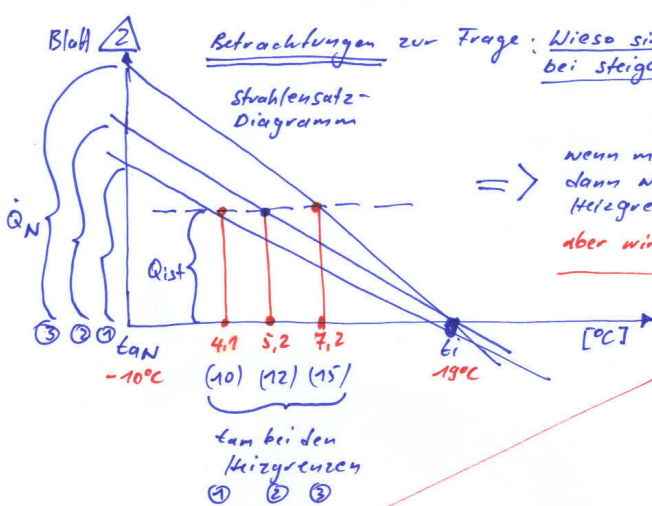 Blatt 2
Betrachtungen zur Frage: Wieso
bei
Strahlensatz-
Diagramm
=> wenn
dann
aber
Q̇N
Qist
③ ② ①
taN
-10°C
4,1 5,2 7,2
(10) (12) (15)
ti
19°C
[°C]
tam bei den
Heizgrenzen
① ② ③